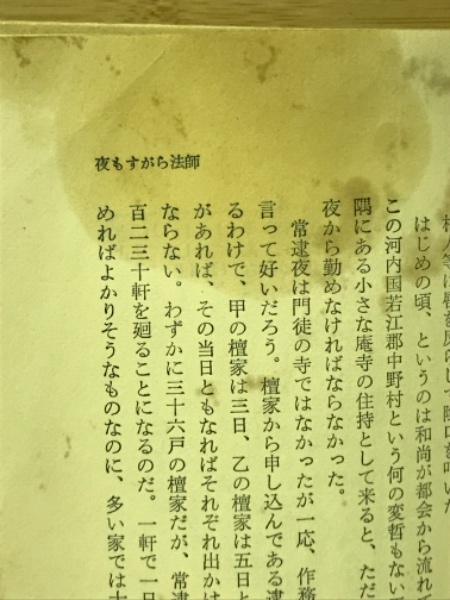 夜もすがら法師
はじめの頃、というのは和尚が都会から流れて
この河内国若江郡中野村という何の変哲もない
隅にある小さな庵寺の住持として来ると、ただ
夜から勤めなければならなかった。
常逮夜は門徒の寺ではなかったが一応、作務
言って好いだろう。檀家から申し込んである逮
るわけで、甲の檀家は三日、乙の檀家は五日と
があれば、その当日ともなればそれぞれ出かけ
ならない。わずかに三十六戸の檀家だが、常逮
百二三十軒を廻ることになるのだ。一軒で一日
めればよかりそうなものなのに、多い家では